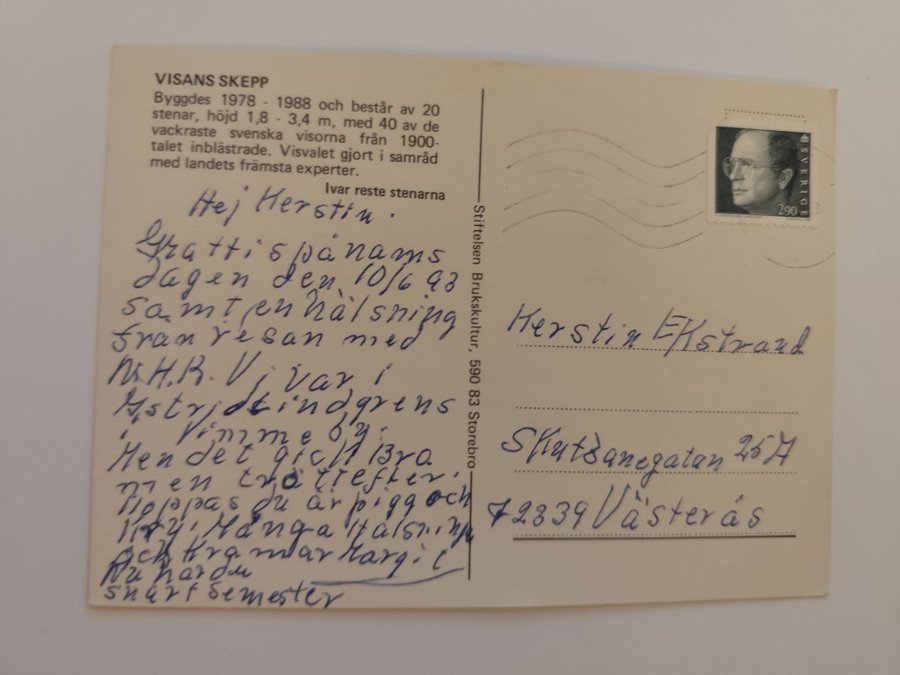 VISANS SKEPP
Byggdes 1978 - 1988 och består av 20
stenar, höjd 1,8 - 3,4 m, med 40 av de
vackraste svenska visorna från 1900-
talet inblästrade. Visvalet gjort i samråd
med landets främsta experter.
Ivar reste stenarna
Hej Kerstin.
Grattis på nams
dagen den 10/6 93
samt en hälsning
från resan med
H.R. Vi var i
Astrid Lindgrens
i Vimmeby.
Men det gick Bra
men trött efter.
Hoppas du är pigg och
Kry. Många Hälsningar
och Kramar Margit
Nu har du
snart semester
Stiftelsen Brukskultur, 590 83 Storebro
SVERIGE
290
Kerstin EKstrand
25 A
72339 Västerås